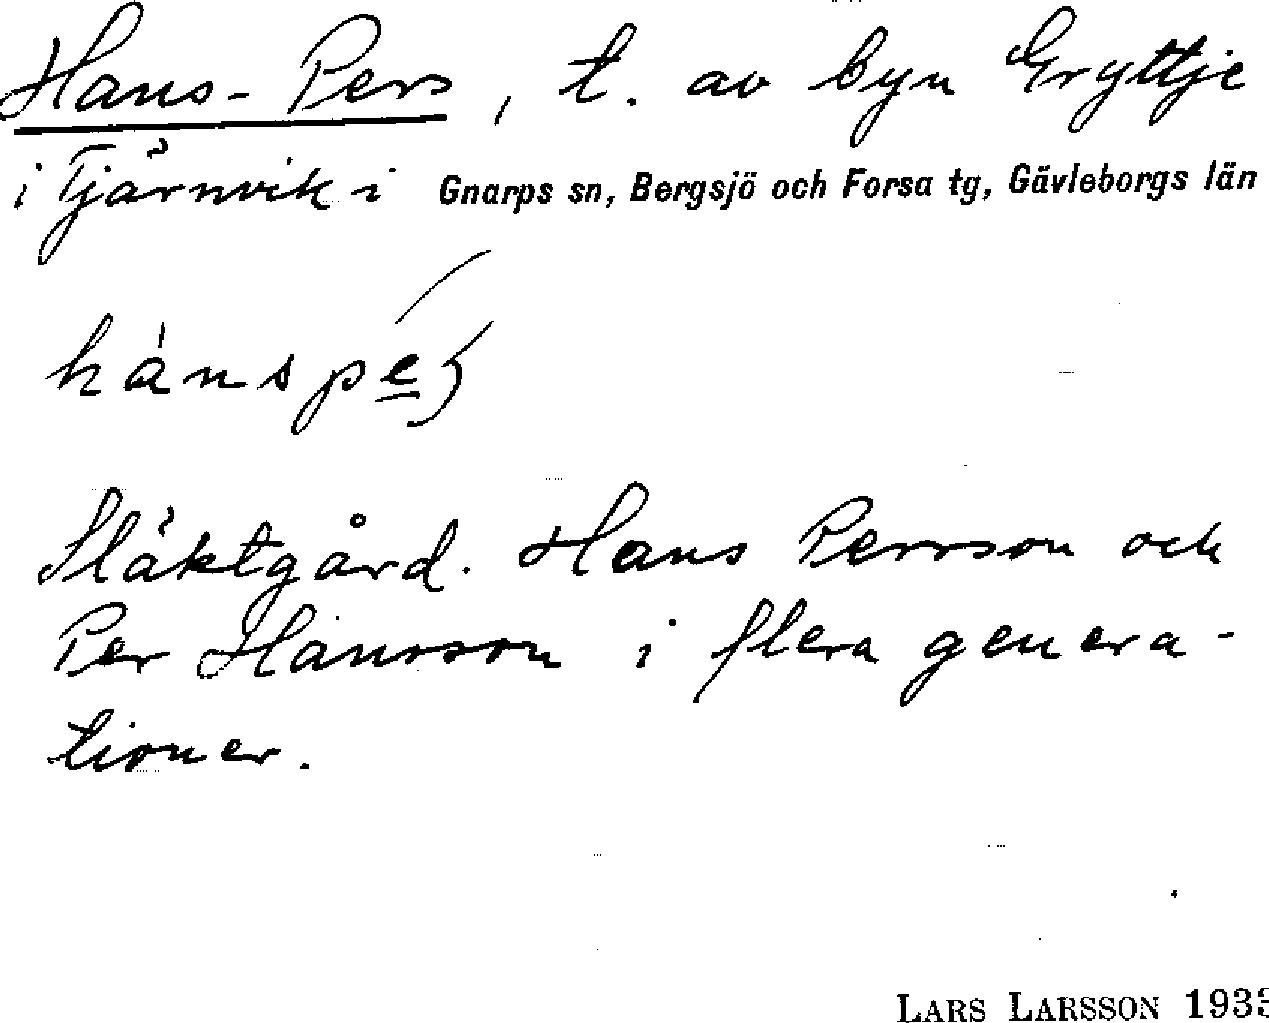 Hans-Pers, t. av byn Gryttje
i Tjärnvik i Gnarps sn, Bergsjö och Forsa tg, Gävleborgs län
Släktgård. Hans Persson och
Per Hansson i flera genera-
tioner.
LARS LARSSON 1933